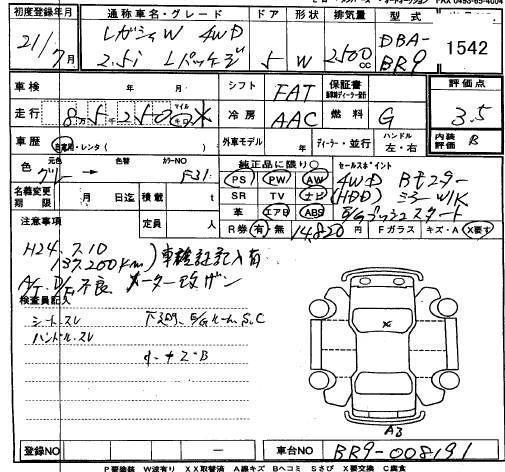 初度登録年月 通称車名・グレード ドア 形状 排気量 型式
21/7月 レガシィW 4WD 2.5i Lパッケージ 5 W 2500cc DBA-BR9 1542
車検 年 月 シフト FAT 保証書 新車時ディーラー発行 評価点
走行 8万5千250 マイル キロ ※ 冷房 AAC 燃料 G 3.5
車歴 自家用・レンタ( ) 外車モデル ディーラー・並行 ハンドル 左・右 内装評価 B
色 元色 色替 カラーNO 純正品に限り○ セールスポイント
グレー → F31 PS PW AW 4WD Bモニター
名義変更期限 月 日迄 積載 t SR TV ナビ (HDD) ミラーW/K
革 エアB ABS E/Gプッシュスタート
注意事項 定員 人 R券 有 無 14,820円 Fガラス キズ・A X要す
H24.7.10
137,200km)車検証記入有
A/T、D/G不良 メーター改ザン
検査員記入
シートスレ 下回り、E/GルームS,C
ハンドルスレ
A3
登録NO 車台NO BR9-008191
P要塗装 W波有り XX取替済 A線キズ Bヘコミ Sさび X要交換 C腐食